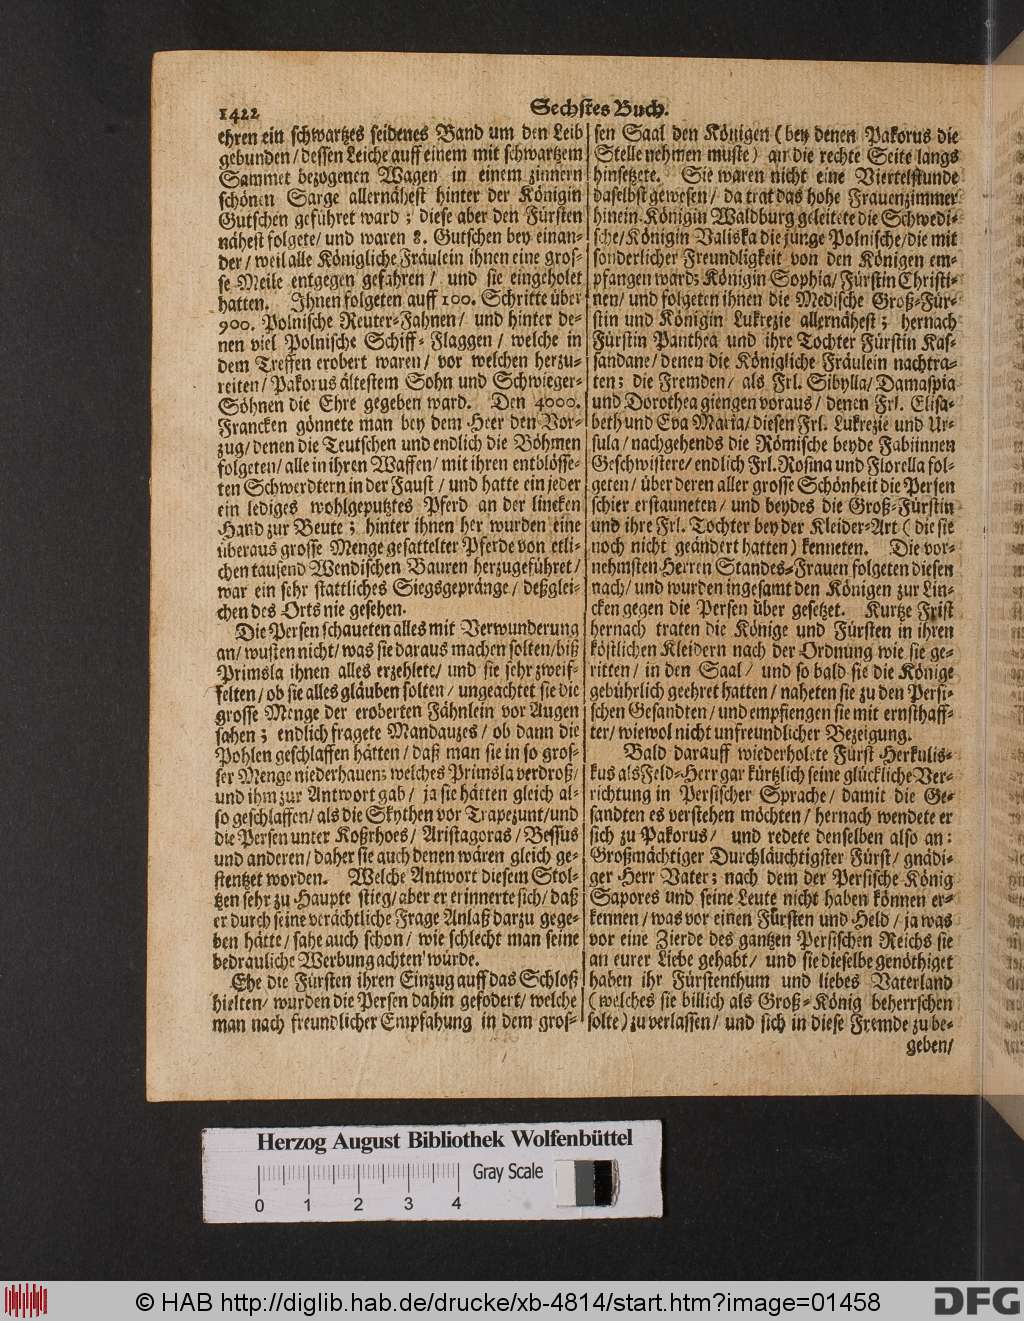 1422
Sechstes Buch.
ehren ein schwartzes seidenes Band um den Leib
gebunden/ dessen Leiche auff einem mit schwartzem
Sammet bezogenen Wagen in einem zinnern
schönen Sarge allernähest hinter der Königin
Gutschen geführet ward; diese aber den Fürsten
nähest folgete/ und waren 8. Gutschen bey einan-
der/ weil alle Königliche Fräulein ihnen eine gros-
se Meile entgegen gefahren/ und sie eingeholet
hatten. Ihnen folgeten auff 100. Schritte über
900. Polnische Reuter-Fahnen/ und hinter de-
nen viel Polnische Schiff-Flaggen/ welche in
dem Treffen erobert waren/ vor welchen herzu-
reiten/ Pakorus ältestem Sohn und Schwieger-
Söhnen die Ehre gegeben ward. Den 4000.
Francken gönnete man bey dem Heer den Vor-
zug/ denen die Teutschen und endlich die Böhmen
folgeten/ alle in ihren Waffen/ mit ihren entblösse-
ten Schwerdtern in der Faust/ und hatte ein jeder
ein lediges wohlgeputztes Pferd an der lincken
Hand zur Beute; hinter ihnen her wurden eine
überaus grosse Menge gesattelter Pferde von etli-
chen tausend Wendischen Bauren herzugeführet/
war ein sehr stattliches Siegsgepränge/ deßglei-
chen des Orts nie gesehen.
Die Persen schaueten alles mit Verwunderung
an/ wusten nicht/ was sie daraus machen solten/ biß
Primsla ihnen alles erzehlete/ und sie sehr zweif-
felten/ ob sie alles gläuben solten/ ungeachtet sie die
grosse Menge der eroberten Fähnlein vor Augen
sahen; endlich fragete Mandauzes/ ob dann die
Pohlen geschlaffen hätten/ daß man sie in so gros-
ser Menge niederhauen; welches Primsla verdroß/
und ihm zur Antwort gab/ ja sie hätten gleich al-
so geschlaffen/ als die Skythen vor Trapezunt/ und
die Persen unter Koßrhoes/ Aristagoras/ Bessus
und anderen/ daher sie auch denen wären gleich ge-
stentzet worden. Welche Antwort diesem Stol-
tzen sehr zu Haupte stieg/ aber er erinnerte sich/ daß
er durch seine verächtliche Frage Anlaß darzu gege-
ben hätte/ sahe auch schon/ wie schlecht man seine
bedrauliche Werbung achten würde.
Ehe die Fürsten ihren Einzug auff das Schloß
hielten/ wurden die Persen dahin gefodert/ welche
man nach freundlicher Empfahung in dem gros-
sen Saal den Königen (bey denen Pakorus die
Stelle nehmen muste) an die rechte Seite langs
hinsetzete. Sie waren nicht eine Viertelstunde
daselbst gewesen/ da trat das hohe Frauenzimmer
hinein. Königin Waldburg geleitete die Schwedi-
sche/ Königin Valiska die junge Polnische/ die mit
sonderlicher Freundligkeit von den Königen em-
pfangen ward; Königin Sophia/ Fürstin Christi-
nen/ und folgeten ihnen die Medische Groß-Für-
stin und Königin Lukrezie allernähest; hernach
Fürstin Panthea und ihre Tochter Fürstin Kas-
sandane/ denen die Königliche Fräulein nachtra-
ten; die Fremden/ als Frl. Sibylla/ Damaspia
und Dorothea giengen voraus/ denen Frl. Elisa-
beth und Eva Maria/ diesen Frl. Lukrezie und Ur-
sula/ nachgehends die Römische beyde Fabiinnen
Geschwistere/ endlich Frl. Rosina und Florella fol-
geten/ über deren aller grosse Schönheit die Persen
schier erstauneten/ und beydes die Groß-Fürstin
und ihre Frl. Tochter bey der Kleider-Art (die sie
noch nicht geändert hatten) kenneten. Die vor-
nehmsten Herren Standes-Frauen folgeten diesen
nach/ und wurden ingesamt den Königen zur Lin-
cken gegen die Persen über gesetzet. Kurtze Frist
hernach traten die Könige und Fürsten in ihren
köstlichen Kleidern nach der Ordnung wie sie ge-
ritten/ in den Saal/ und so bald sie die Könige
gebührlich geehret hatten/ naheten sie zu den Persi-
schen Gesandten/ und empfiengen sie mit ernsthaff-
ter/ wiewol nicht unfreundlicher Bezeigung.
Bald darauff wiederholete Fürst Herkulis-
kus als Feld-Herr gar kürtzlich seine glückliche Ver-
richtung in Persischer Sprache/ damit die Ge-
sandten es verstehen möchten/ hernach wendete er
sich zu Pakorus/ und redete denselben also an:
Großmächtiger Durchläuchtigster Fürst/ gnädi-
ger Herr Vater; nach dem der Persische König
Sapores und seine Leute nicht haben können er-
kennen/ was vor einen Fürsten und Held/ ja was
vor eine Zierde des gantzen Persischen Reichs sie
an eurer Liebe gehabt/ und sie dieselbe genöthiget
haben ihr Fürstenthum und liebes Vaterland
(welches sie billich als Groß-König beherrschen
solte) zu verlassen/ und sich in diese Fremde zu be-
geben/
Herzog August Bibliothek Wolfenbüttel
Gray Scale
0 1 2 3 4
© HAB http://diglib.hab.de/drucke/xb-4814/start.htm?image=01458
DFG